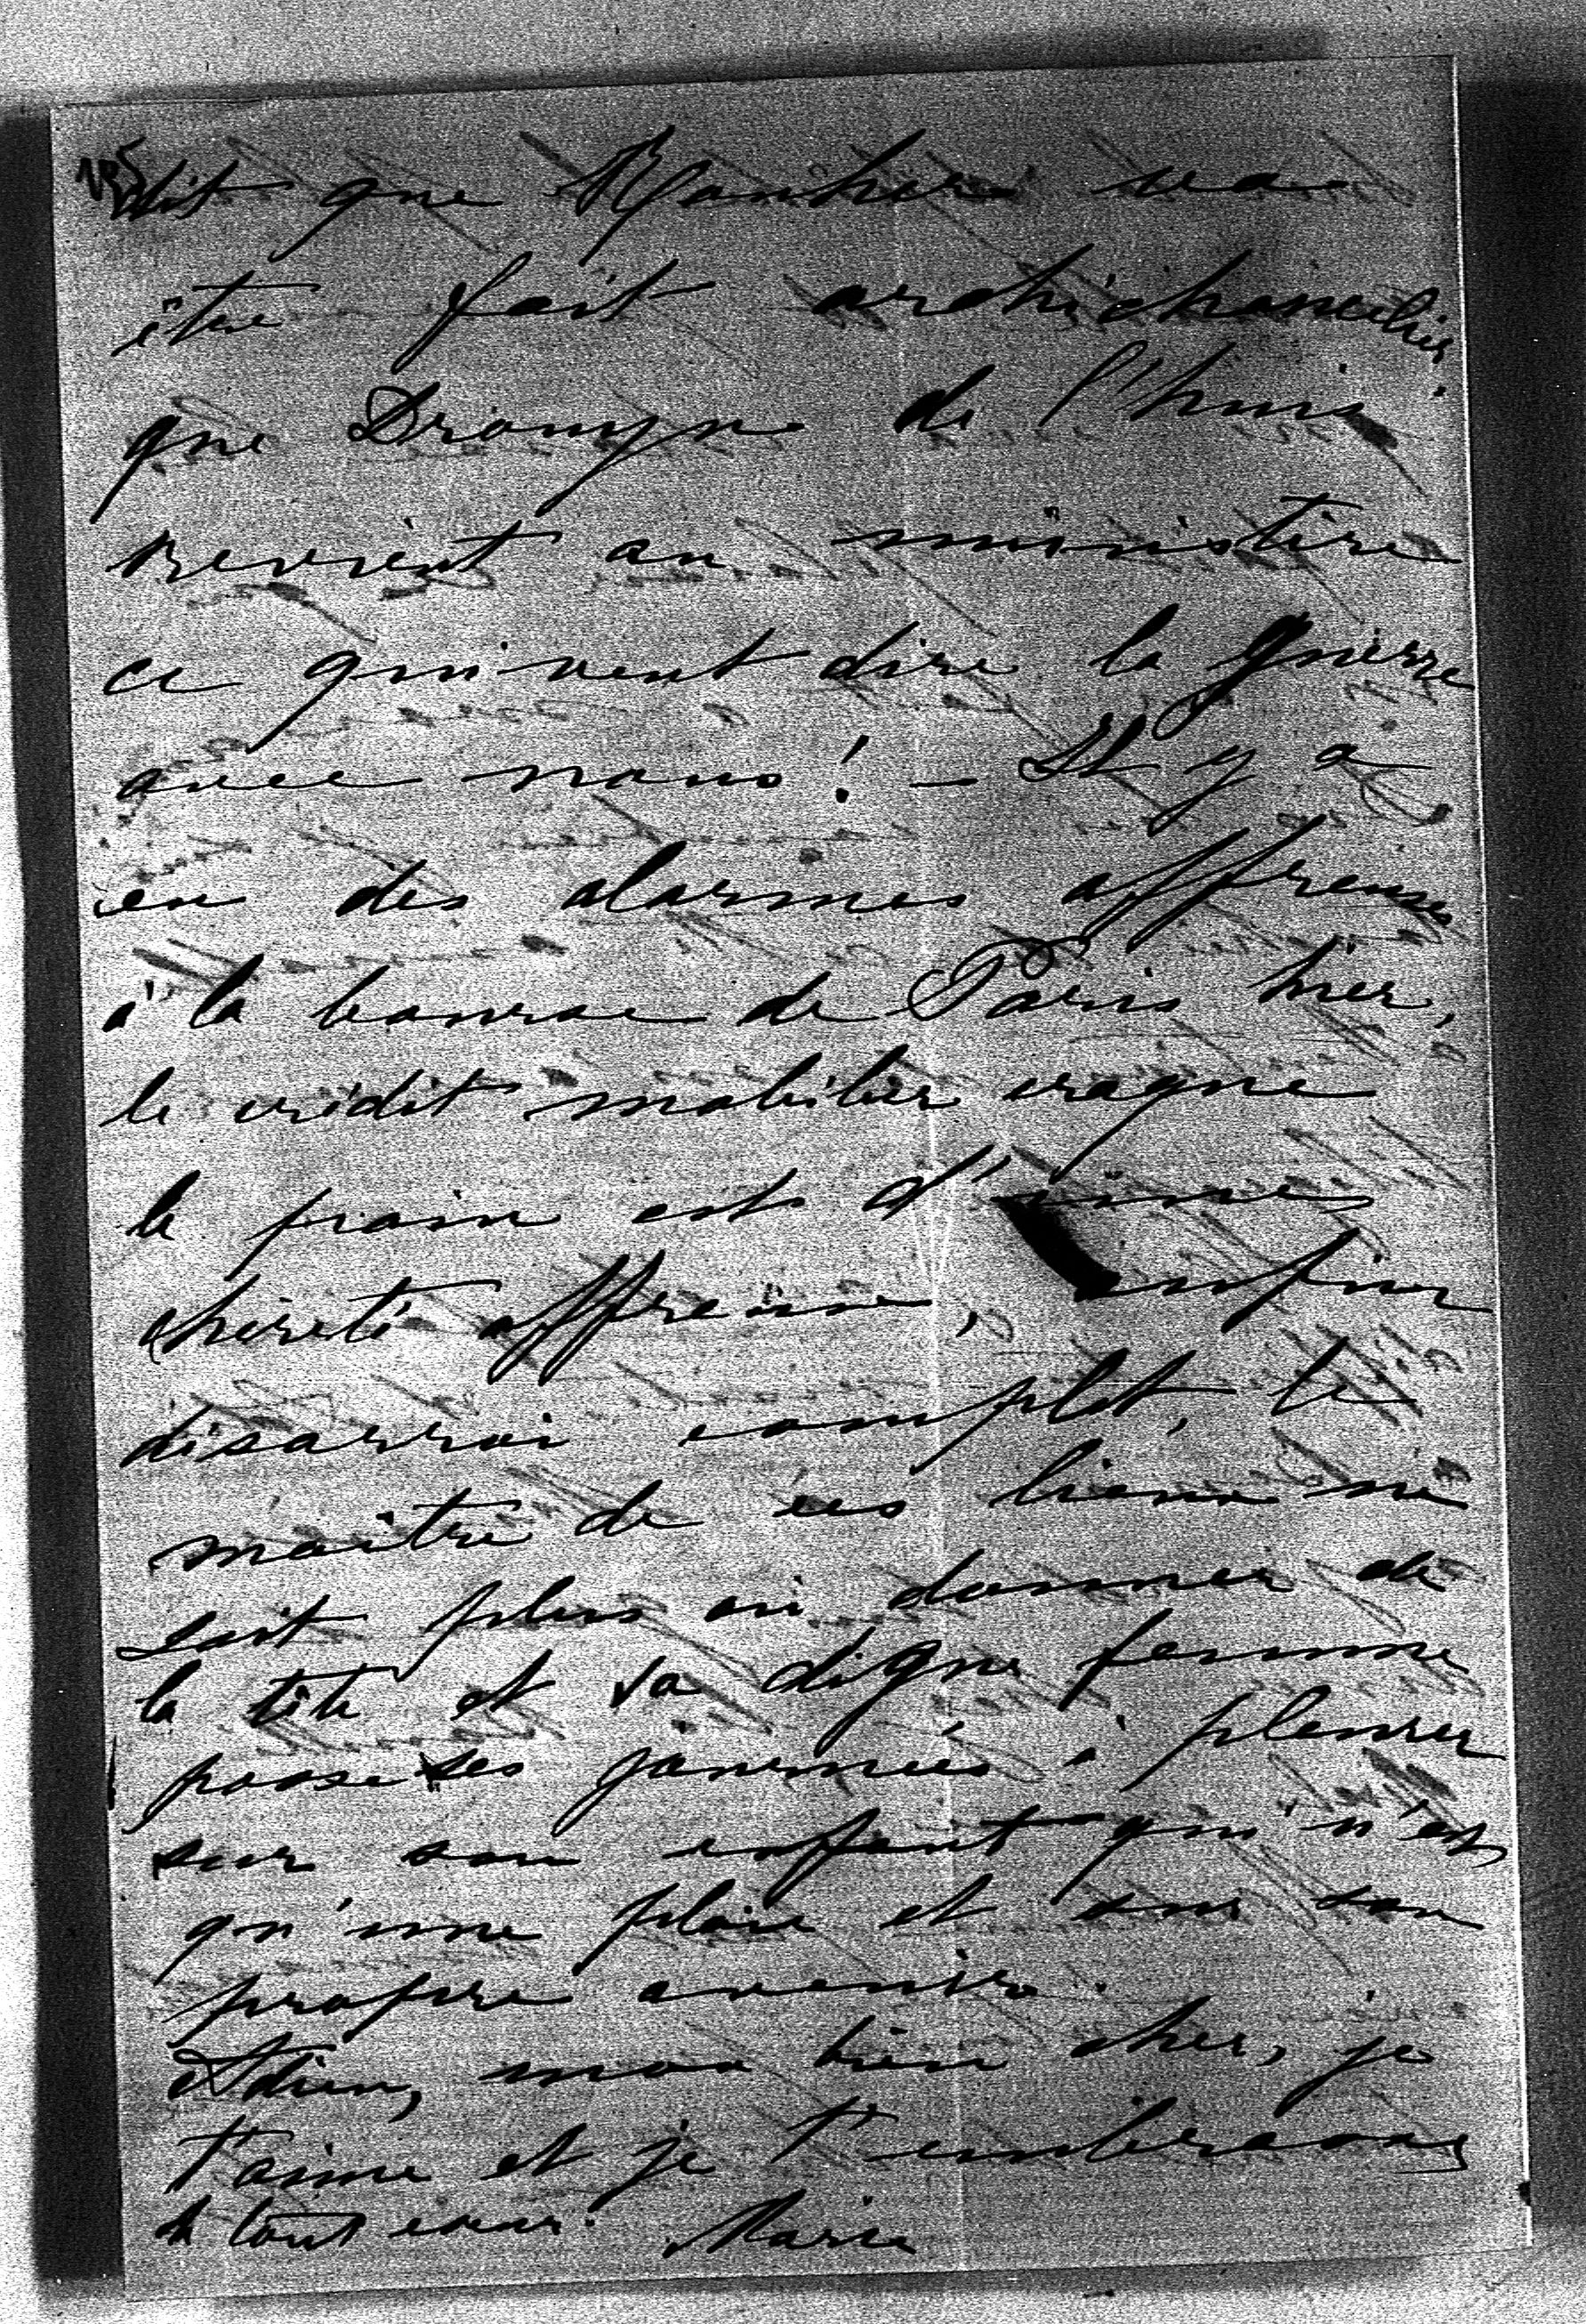 dit que Rouher va
être fait archichancelier
que Drouyn de l'huis
revient au ministère
ce qui veut dire la guerre
avec nous! – Il y a
eu des alarmes affreuses
à la bourse de Paris hier,
le crédit mobilier craque
le pain est d'une
cherté affreuse, enfin
désarroi complet, le
maître de ces lieux ne
sait plus où donner de
la tête et sa digne femme
passe ses journées à pleurer
sur son enfant qui n'est
qu'une plaie et sur son
propre avenir.
Adieu, mon bien cher, je
t'aime et je t'embrasse
de tout cœur. Marie